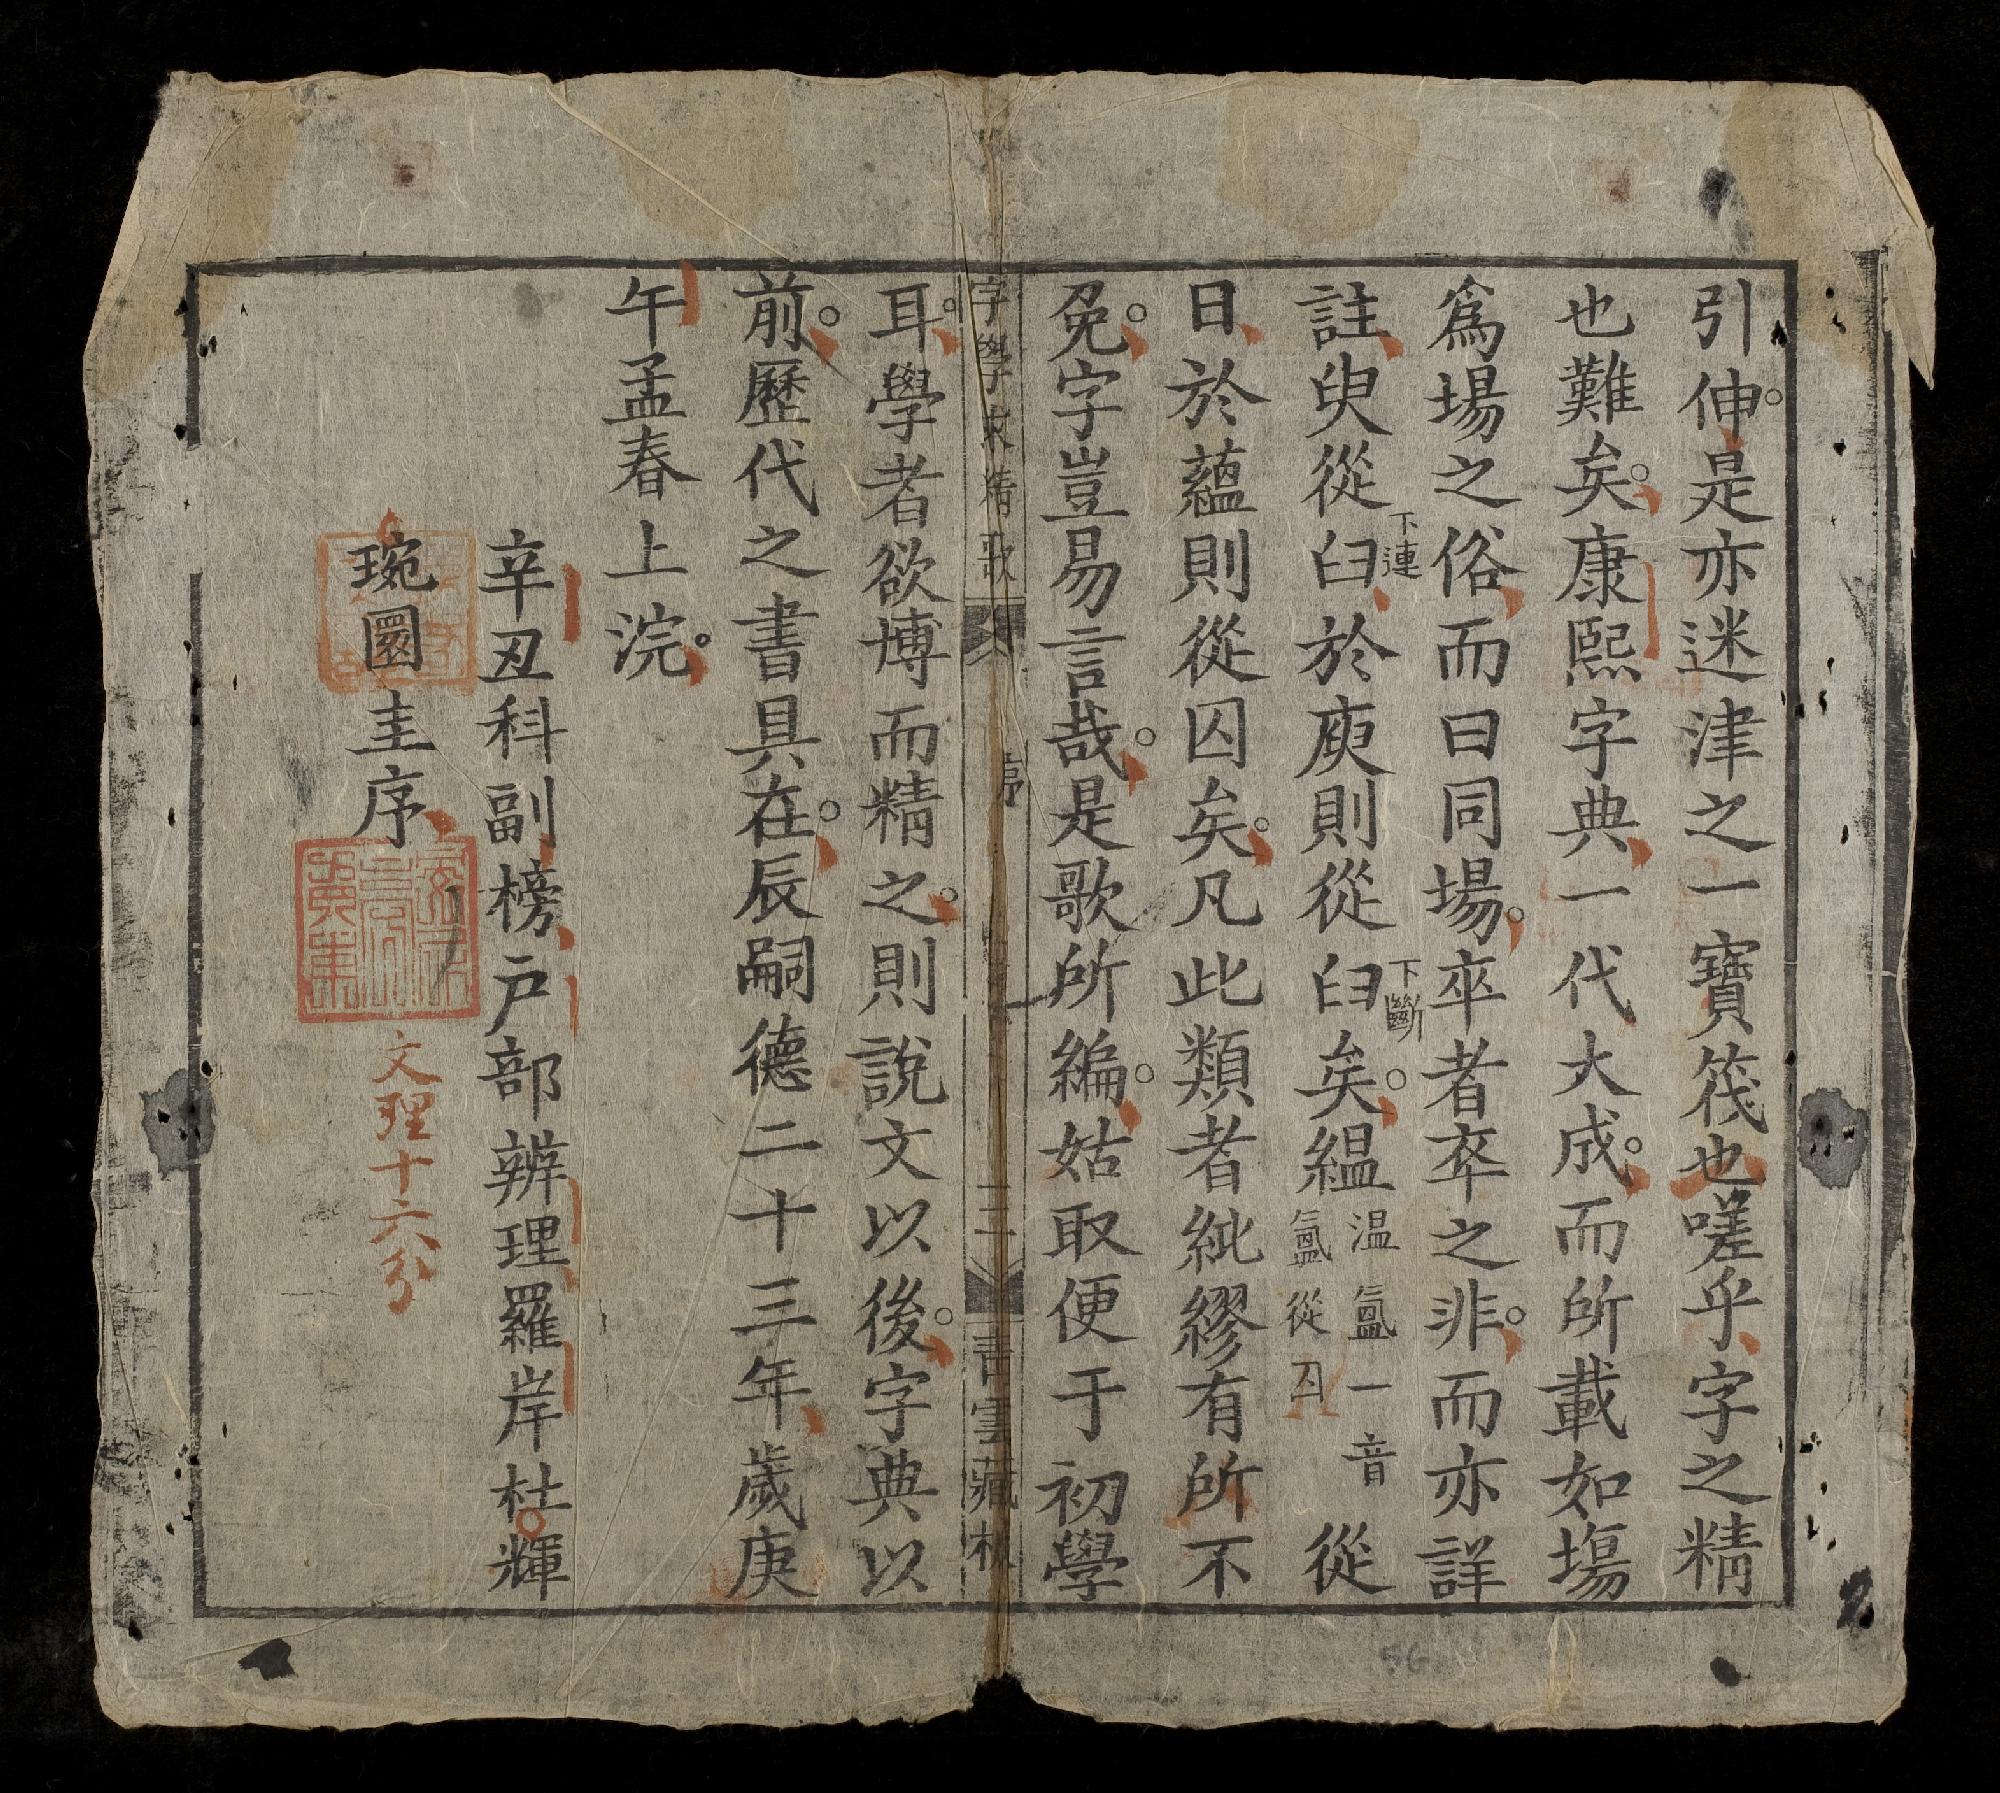 引伸是亦迷津之一寶筏也嗟乎字之精
也難矣康熙字典一代大成而所載如塲
爲場之俗而曰同場卒者卒之非而亦詳
註臾從臼下連於庾則從臼下斷矣縕溫氳一音氳從囚從
日於蘊則從囚矣凡此類者紕繆有所不
免字豈易言哉是歌所編姑取便于初學
字學求精歌 序 三 書雲藏板
耳學者欲博而精之則說文以後字典以
前歷代之書具在辰嗣德二十三年歲庚
午孟春上浣
辛丑科副榜戶部辨理羅岸杜輝
琬圜圭序
文理十六分